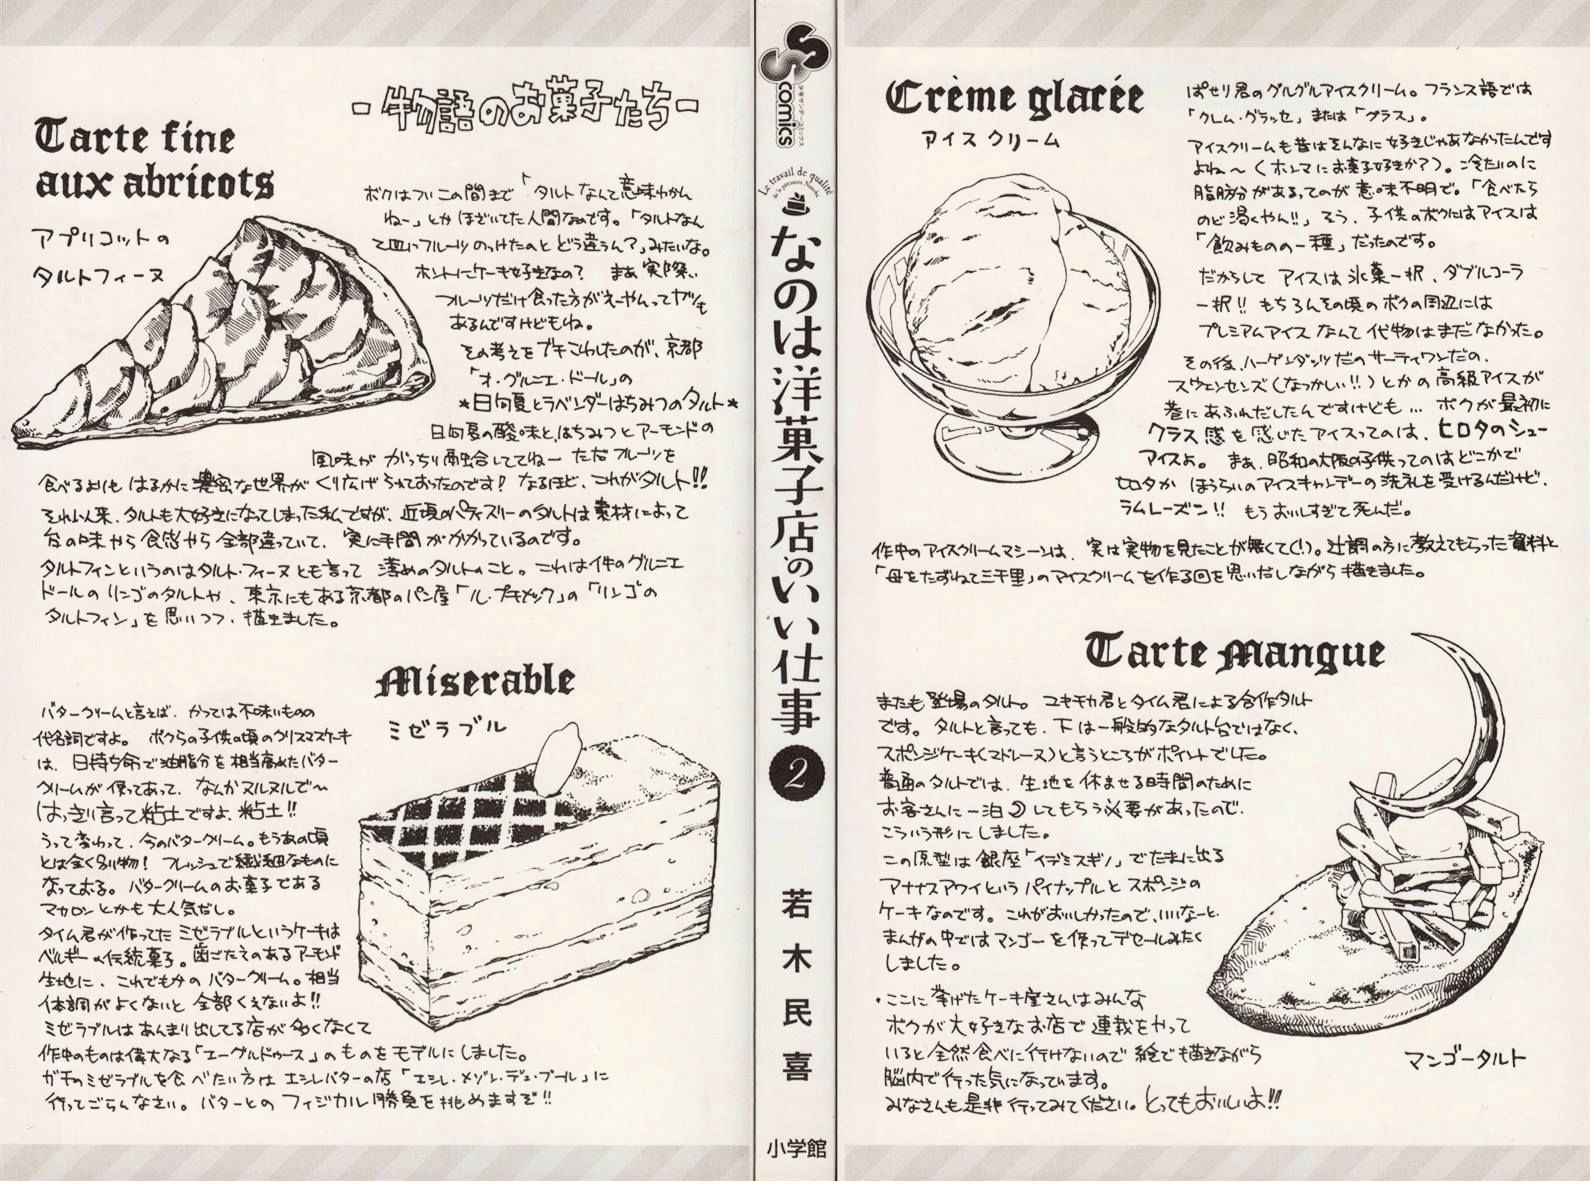 -物語のお菓子たち-
Tarte fine
aux abricots
アプリコットの
タルトフィーヌ
ボクはつい この間まで「タルトなんて意味わかん
ね〜」とか ほざいてた人間なのです。「タルトなん
て皿にフルーツのっけたのと どう違うん?」みたいな。
ホントにケーキ好きなの? まあ 実際、
フルーツだけ食った方がえーやんってヤツも
あるんですけどもね。
その考えをブチこわしたのが、京都
「オ・グルニエ・ドール」の
*日向夏とラベンダーはちみつのタルト*
日向夏の酸味と、はちみつとアーモンドの
風味が がっちり融合しててねー ただフルーツを
食べるよりも はるかに濃密な世界が くり広げられておったのです! なるほど、これがタルト!!
それ以来、タルトも大好きになってしまった私ですが、近頃のパティスリーのタルトは素材によって
台の味やら食感やら全部違っていて、実に手間がかかっているのです。
タルトフィンというのはタルト・フィーヌとも言って 薄めのタルトのこと。これは件のグルニエ
ドールのリンゴのタルトや、東京にもある京都のパン屋「ル・プチメック」の「リンゴの
タルトフィン」を思いつつ、描きました。
Miserable
ミゼラブル
バタークリームと言えば、かつては不味いものの
代名詞ですよ。ボクらの子供の頃のクリスマスケーキ
は、日持ち命で油脂分を相当高めたバター
クリームが使ってあって、なんかヌルヌルで〜
はっきり言って粘土ですよ、粘土!!
うって変わって、今のバタークリーム。もうあの頃
とは全く別物! フレッシュで繊細なものに
なっておる。バタークリームのお菓子である
マカロンとかも大人気だし。
タイム君が作ってた ミゼラブルというケーキは
ベルギーの伝統菓子。歯ごたえのあるアーモンド
生地に、これでもかの バタークリーム。相当
体調がよくないと 全部くえないよ!!
ミゼラブルは あんまり出してる店が多くなくて
作中のものは偉大なる「エーグルドゥース」のものをモデルにしました。
ガチのミゼラブルを食べたい方は エシレバターの店「エシレ・メゾン・デュ・ブール」に
行ってごらんなさい。バターとの フィジカル勝負を挑めますぞ!!
S
S
comics
少年サンデーコミックス
Le travail de qualité
なのは洋菓子店のいい仕事
2
若木民喜
小学館
Crème glacée
アイスクリーム
ぱせり君のグルグルアイスクリーム。フランス語では
「クレム・グラッセ」または「グラス」。
アイスクリームも昔はそんなに好きじゃあなかったんです
よね〜(ホンマにお菓子好きか?)。冷たいのに
脂肪分があるってのが意味不明で。「食べたら
のど渇くやん!!」そう、子供のボクにはアイスは
「飲みものの一種」だったのです。
だからして アイスは氷菓一択、ダブルコーラ
一択!! もちろんその頃のボクの周辺には
プレミアムアイスなんて代物はまだなかった。
その後、ハーゲンダッツだのサーティワンだの、
スウェンセンズ(なつかしい!!)とかの高級アイスが
巷にあふれだしたんですけども… ボクが最初に
クラス感を感じたアイスってのは、ヒロタのシュー
アイスよ。まあ、昭和の大阪の子供ってのはどこかで
ヒロタか ほうらいのアイスキャンデーの洗礼を受けるんだけど、
ラムレーズン!! もうおいしすぎて死んだ。
作中のアイスクリームマシーンは、実は実物を見たことが無くて(!)。辻調の方に教えてもらった資料と
「母をたずねて三千里」のアイスクリームを作る回を思いだしながら 描きました。
Tarte Mangue
またも登場のタルト。ユキチカ君とタイム君による合作タルト
です。タルトと言っても、下は一般的なタルト台ではなく、
スポンジケーキ(マドレーヌ)と言うところがポイントでした。
普通のタルトでは、生地を休ませる時間のために
お客さんに一泊してもらう必要があったので、
こういう形にしました。
この原型は 銀座「イデミスギノ」でたまに出る
アナナスアワイというパイナップルとスポンジの
ケーキなのです。これがおいしかったので、いいなーと、
まんがの中ではマンゴーを使ってデセールみたく
しました。
・ここに挙げたケーキ屋さんはみんな
ボクが大好きなお店で 連載をやって
いると全然食べに行けないので 絵でも描きながら
脳内で行った気になっています。
みなさんも是非行ってみてください。とってもおいしいよ!!
マンゴータルト